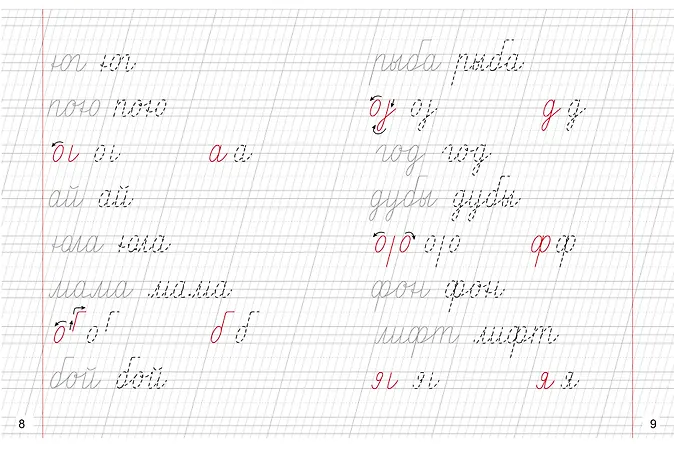 юг юг
пою пою
а а
ай ай
юла юла
мама мама
б б
бой бой
8
рыба рыба
д д
год год
дубы дубы
ф ф
фон фон
лифт лифт
я я
9